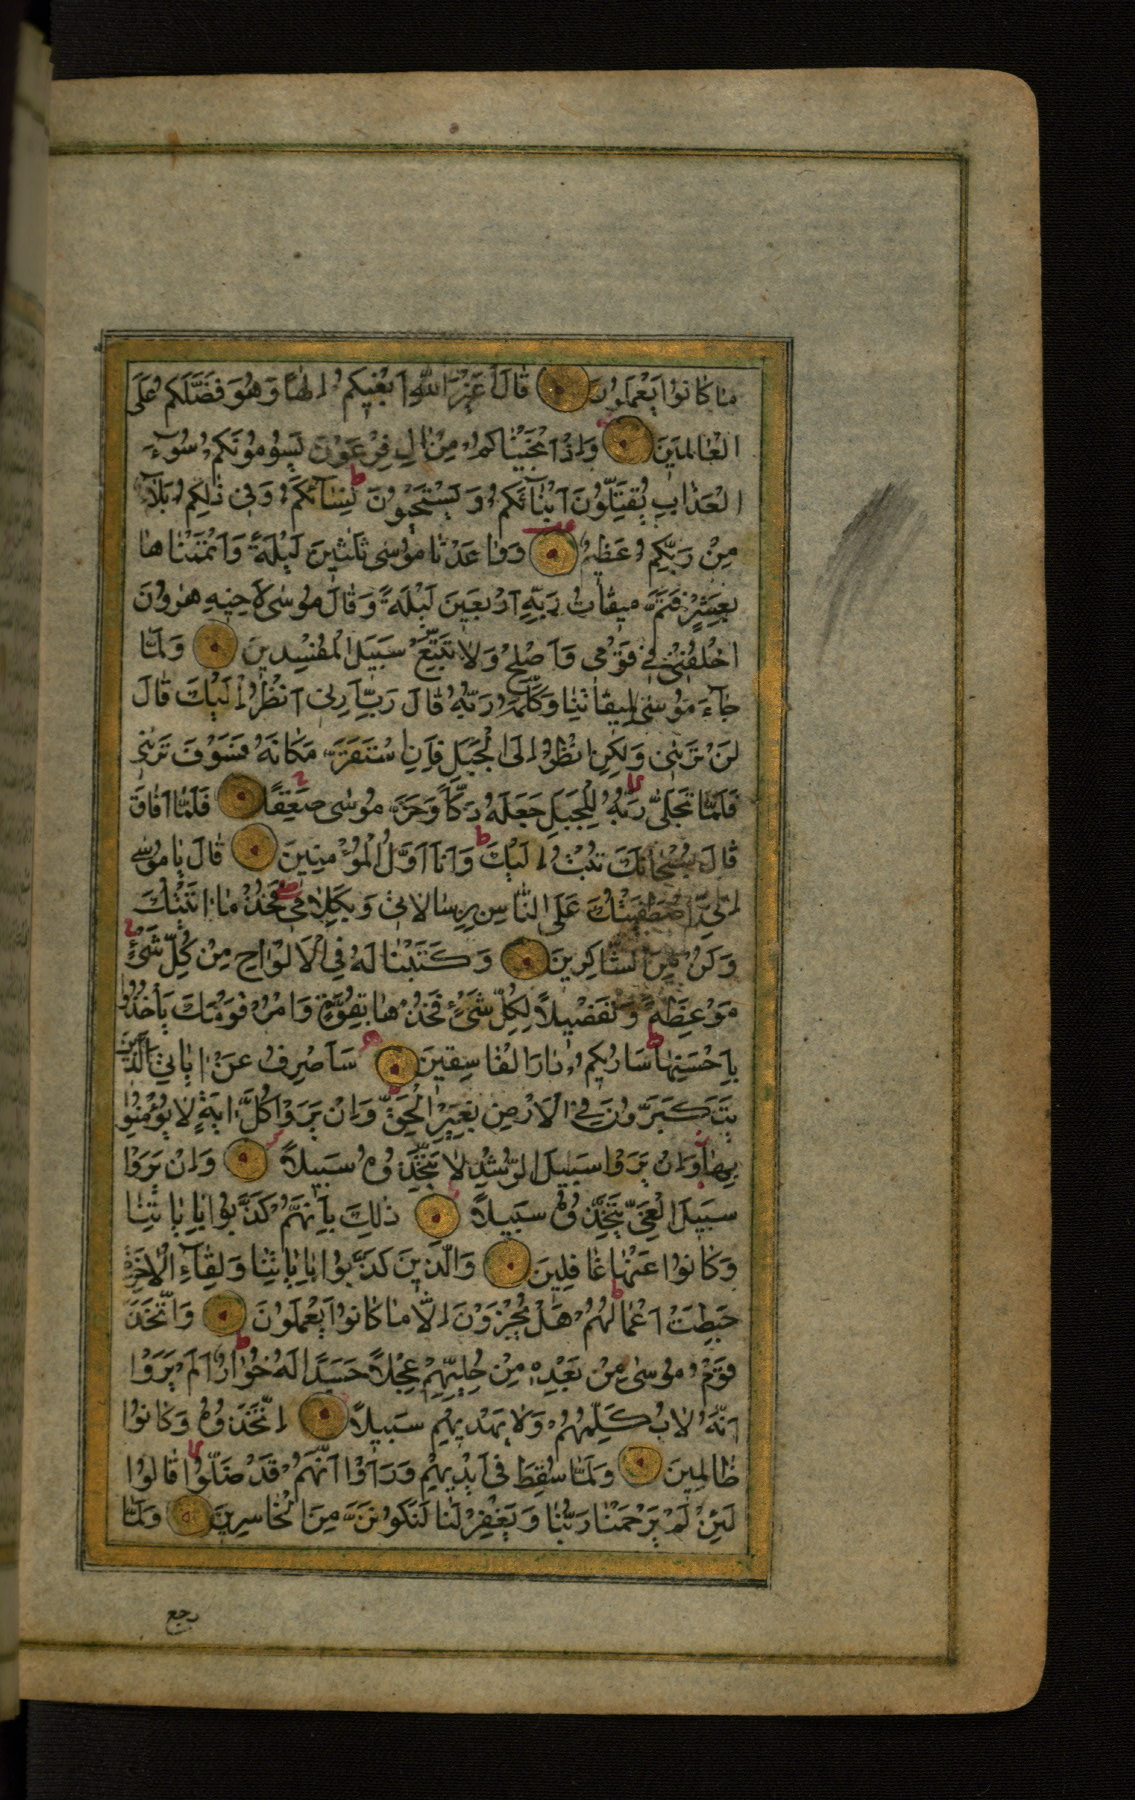 مَا كَانُوا يَعْمَلُونَ قَالَ أَغَيْرَ اللَّهِ أَبْغِيكُمْ إِلَهًا وَهُوَ فَضَّلَكُمْ عَلَى
الْعَالَمِينَ وَإِذْ أَنْجَيْنَاكُمْ مِنْ آلِ فِرْعَوْنَ يَسُومُونَكُمْ سُوءَ
الْعَذَابِ يُقَتِّلُونَ أَبْنَائَكُمْ وَيَسْتَحْيُونَ نِسَائَكُمْ وَفِي ذَلِكُمْ بَلَاءٌ
مِنْ رَبِّكُمْ عَظِيمٌ وَوَاعَدْنَا مُوسَى ثَلَثِينَ لَيْلَةً وَأَتْمَمْنَاهَا
بِعَشْرٍ فَتَمَّ مِيقَاتُ رَبِّهِ أَرْبَعِينَ لَيْلَةً وَقَالَ مُوسَى لِأَخِيهِ هَرُونَ
اخْلُفْنِي فِي قَوْمِي وَأَصْلِحْ وَلَا تَتَّبِعْ سَبِيلَ الْمُفْسِدِينَ وَلَمَّا
جَاءَ مُوسَى لِمِيقَاتِنَا وَكَلَّمَهُ رَبُّهُ قَالَ رَبِّ أَرِنِي أَنْظُرْ إِلَيْكَ قَالَ
لَنْ تَرَنِي وَلَكِنِ انْظُرْ إِلَى الْجَبَلِ فَإِنِ اسْتَقَرَّ مَكَانَهُ فَسَوْفَ تَرَنِي
فَلَمَّا تَجَلَّى رَبُّهُ لِلْجَبَلِ جَعَلَهُ دَكًّا وَخَرَّ مُوسَى صَعِقًا فَلَمَّا أَفَاقَ
قَالَ سُبْحَانَكَ تُبْتُ إِلَيْكَ وَأَنَا أَوَّلُ الْمُؤْمِنِينَ قَالَ يَا مُوسَى
إِنِّي اصْطَفَيْتُكَ عَلَى النَّاسِ بِرِسَالَاتِي وَبِكَلَامِي فَخُذْ مَا آتَيْتُكَ
وَكُنْ مِنَ الشَّاكِرِينَ وَكَتَبْنَا لَهُ فِي الْأَلْوَاحِ مِنْ كُلِّ شَيْءٍ
مَوْعِظَةً وَتَفْصِيلًا لِكُلِّ شَيْءٍ فَخُذْهَا بِقُوَّةٍ وَأْمُرْ قَوْمَكَ يَأْخُذُوا
بِأَحْسَنِهَا سَأُرِيكُمْ دَارَ الْفَاسِقِينَ سَأَصْرِفُ عَنْ آيَاتِيَ الَّذِينَ
يَتَكَبَّرُونَ فِي الْأَرْضِ بِغَيْرِ الْحَقِّ وَإِنْ يَرَوْا كُلَّ آيَةٍ لَا يُؤْمِنُوا
بِهَا وَإِنْ يَرَوْا سَبِيلَ الرُّشْدِ لَا يَتَّخِذُوهُ سَبِيلًا وَإِنْ يَرَوْا
سَبِيلَ الْغَيِّ يَتَّخِذُوهُ سَبِيلًا ذَلِكَ بِأَنَّهُمْ كَذَّبُوا بِآيَاتِنَا
وَكَانُوا عَنْهَا غَافِلِينَ وَالَّذِينَ كَذَّبُوا بِآيَاتِنَا وَلِقَاءِ الْآخِرَةِ
حَبِطَتْ أَعْمَالُهُمْ هَلْ يُجْزَوْنَ إِلَّا مَا كَانُوا يَعْمَلُونَ وَاتَّخَذَ
قَوْمُ مُوسَى مِنْ بَعْدِهِ مِنْ حُلِيِّهِمْ عِجْلًا جَسَدًا لَهُ خُوَارٌ أَلَمْ يَرَوْا
أَنَّهُ لَا يُكَلِّمُهُمْ وَلَا يَهْدِيهِمْ سَبِيلًا اتَّخَذُوهُ وَكَانُوا
ظَالِمِينَ وَلَمَّا سُقِطَ فِي أَيْدِيهِمْ وَرَأَوْا أَنَّهُمْ قَدْ ضَلُّوا قَالُوا
لَئِنْ لَمْ يَرْحَمْنَا رَبُّنَا وَيَغْفِرْ لَنَا لَنَكُونَنَّ مِنَ الْخَاسِرِينَ وَلَمَّا
رجع